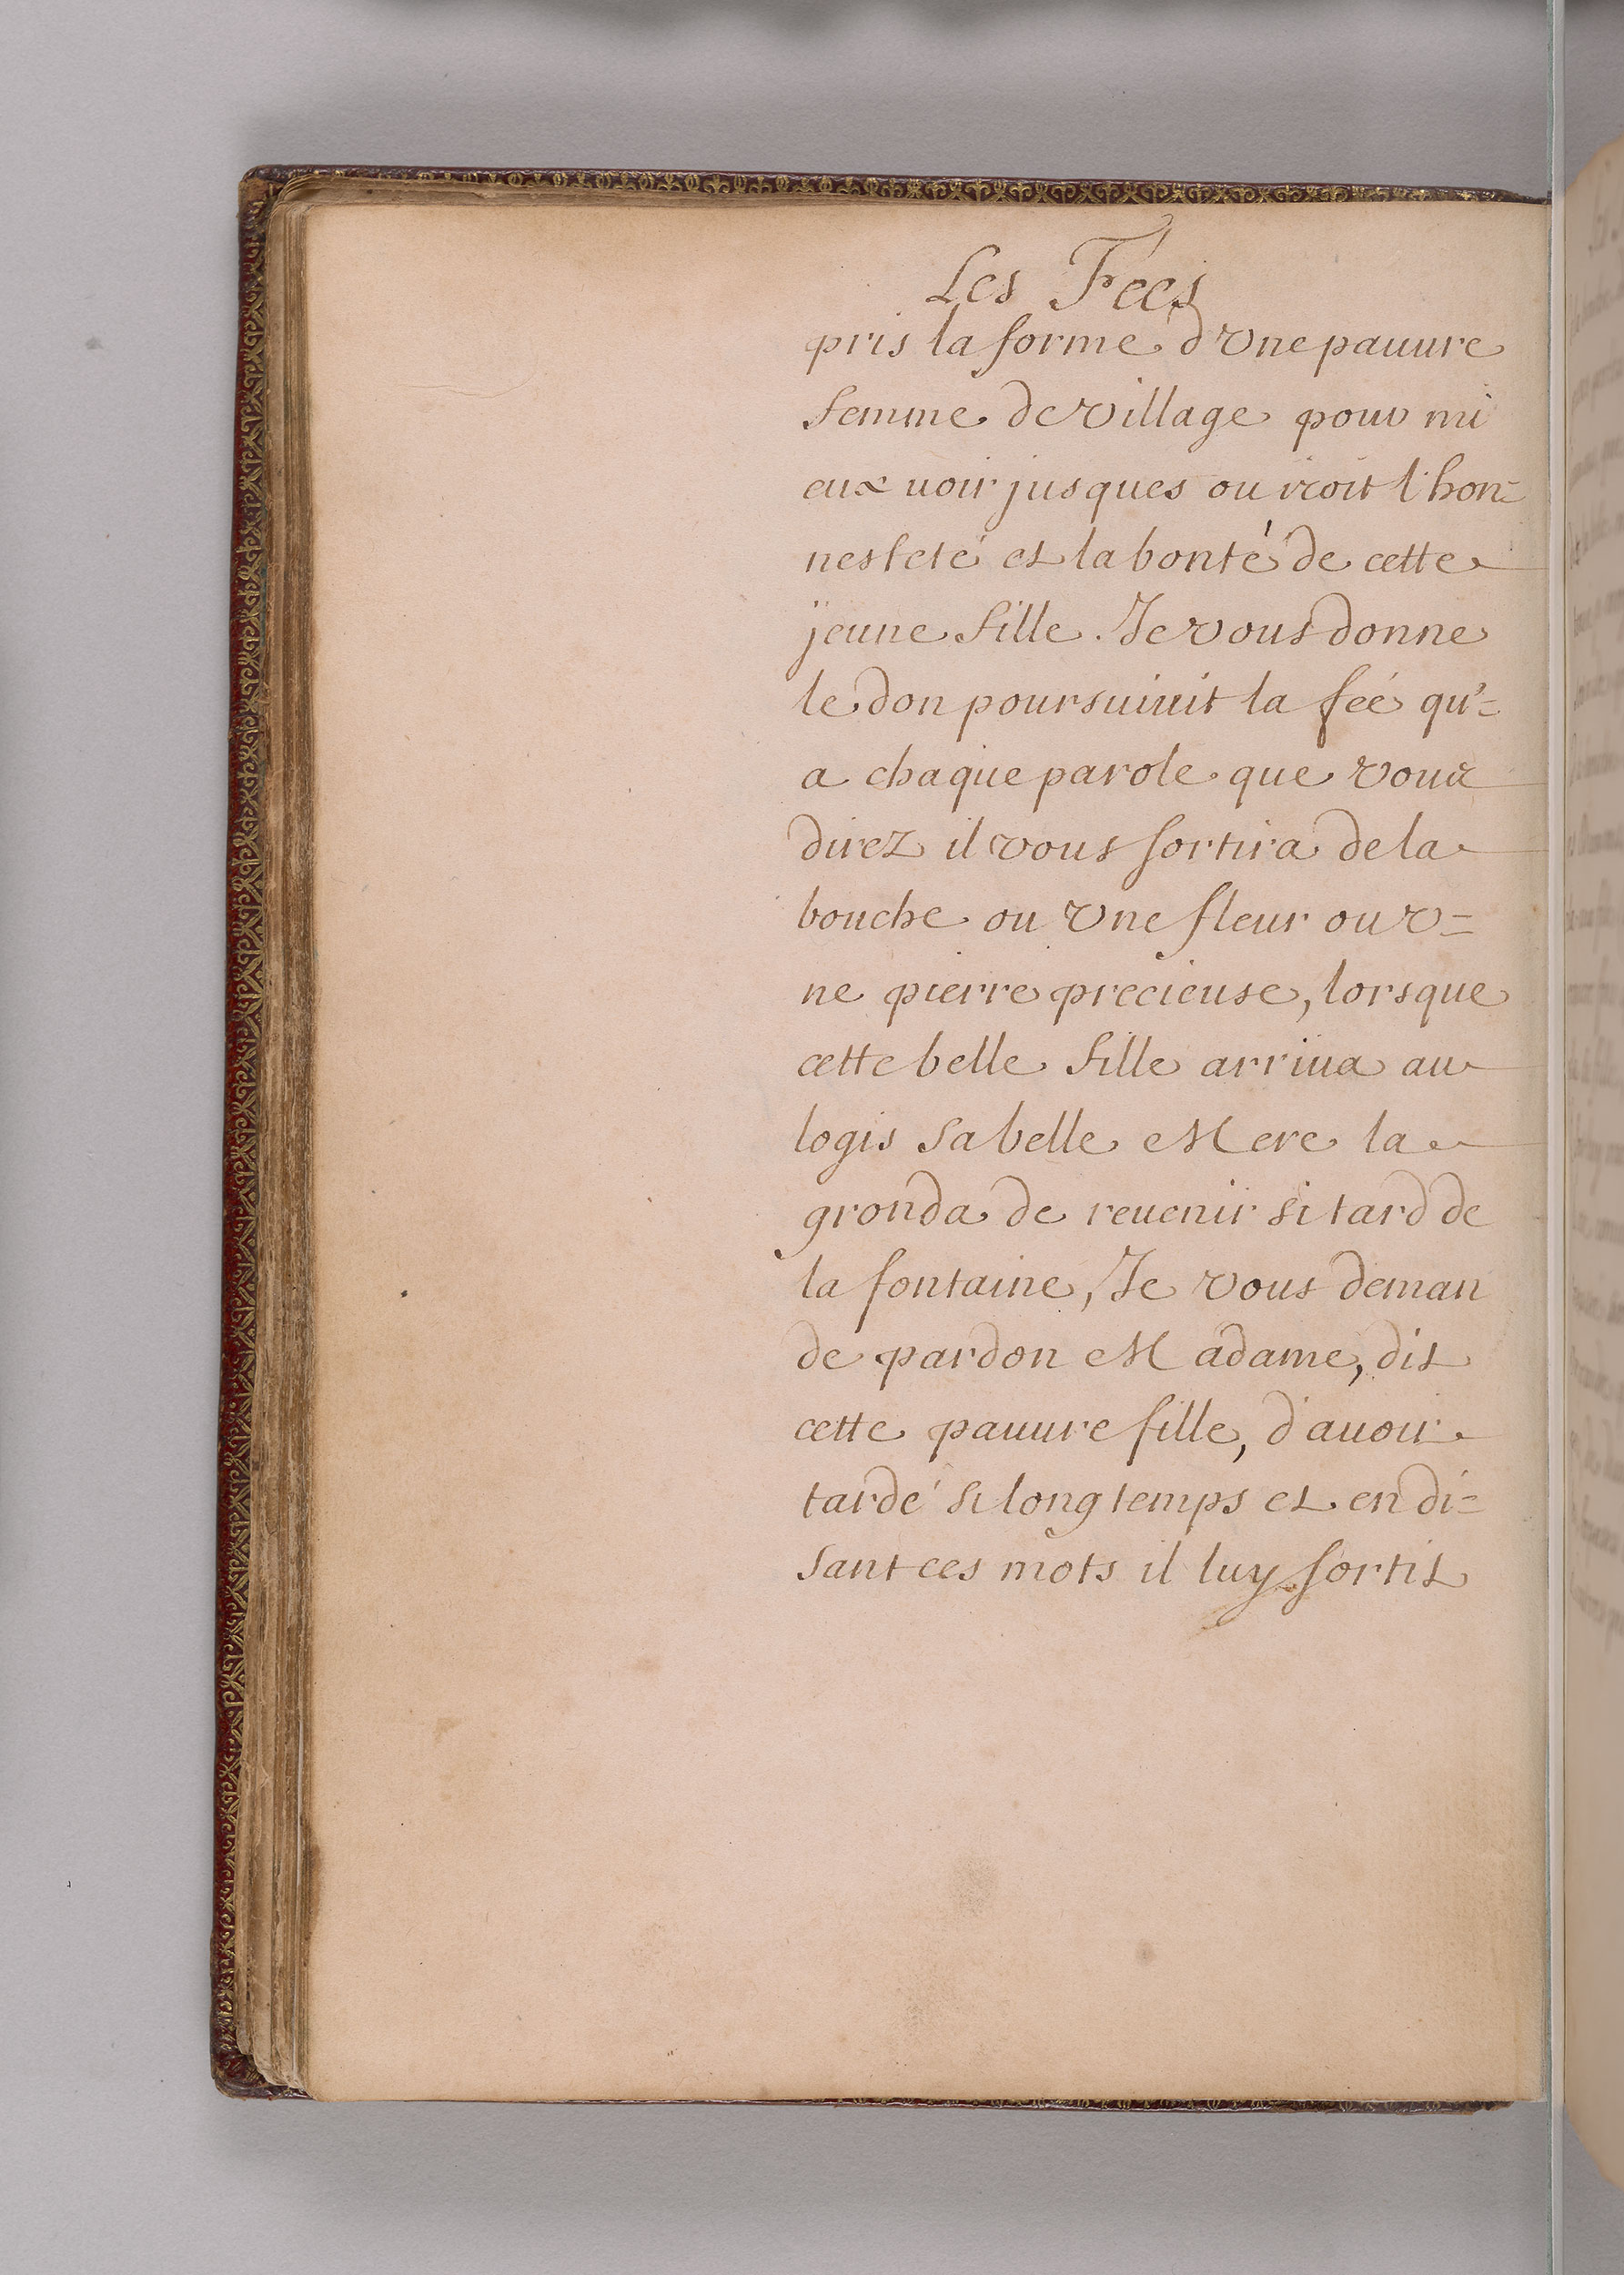 Les Fées
pris la forme d'vne pauure
femme de village pour mi
eux uoir jusques ou iroit l'hon=
nesteté et la bonté de cette
jeune fille. Je vous donne
le don poursuiuit la feé qu'=
a chaque parole que vous
direz il vous sortira de la
bouche ou vne fleur ou v=
ne pierre precieuse, lorsque
cette belle fille arriua au
logis sa belle Mere la
gronda de reuenir si tard de
la fontaine, Je vous deman
de pardon Madame, dit
cette pauure fille, d'auoir
tardé si long temps et en di=
sant ces mots il luy sortit